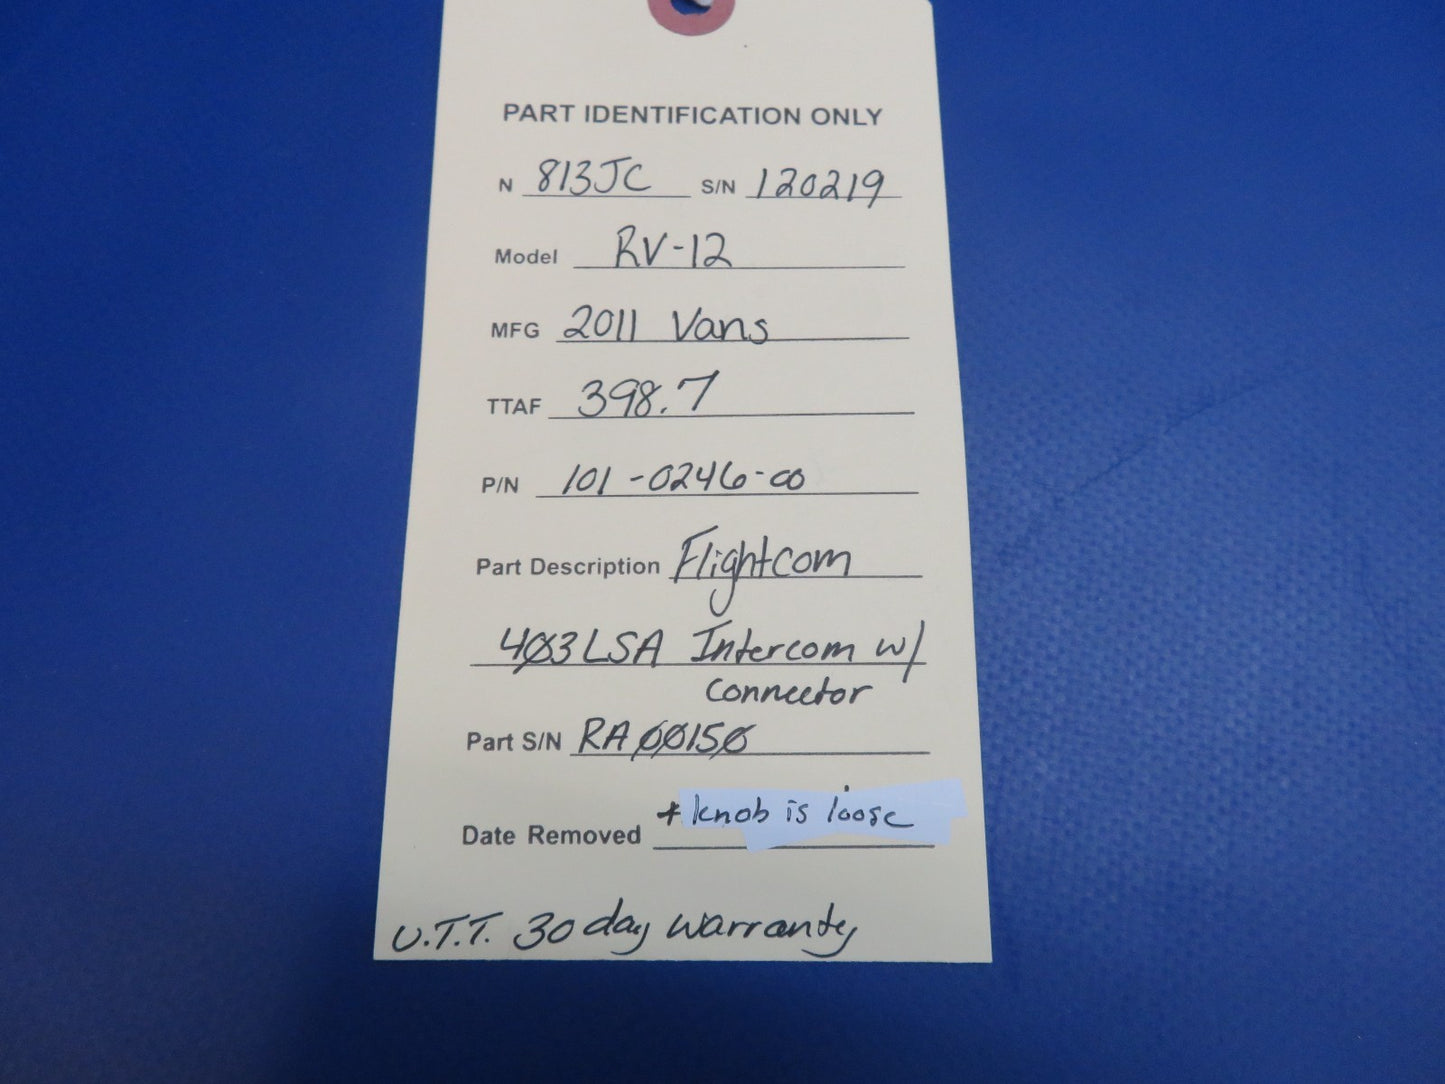 PART IDENTIFICATION ONLY
N 813JC S/N 120219
Model RV-12
MFG 2011 Vans
TTAF 398.7
P/N 101-0246-00
Part Description Flightcom
403LSA Intercom w/
connector
Part S/N RA00150
* knob is loose
Date Removed
U.T.T. 30 day warranty